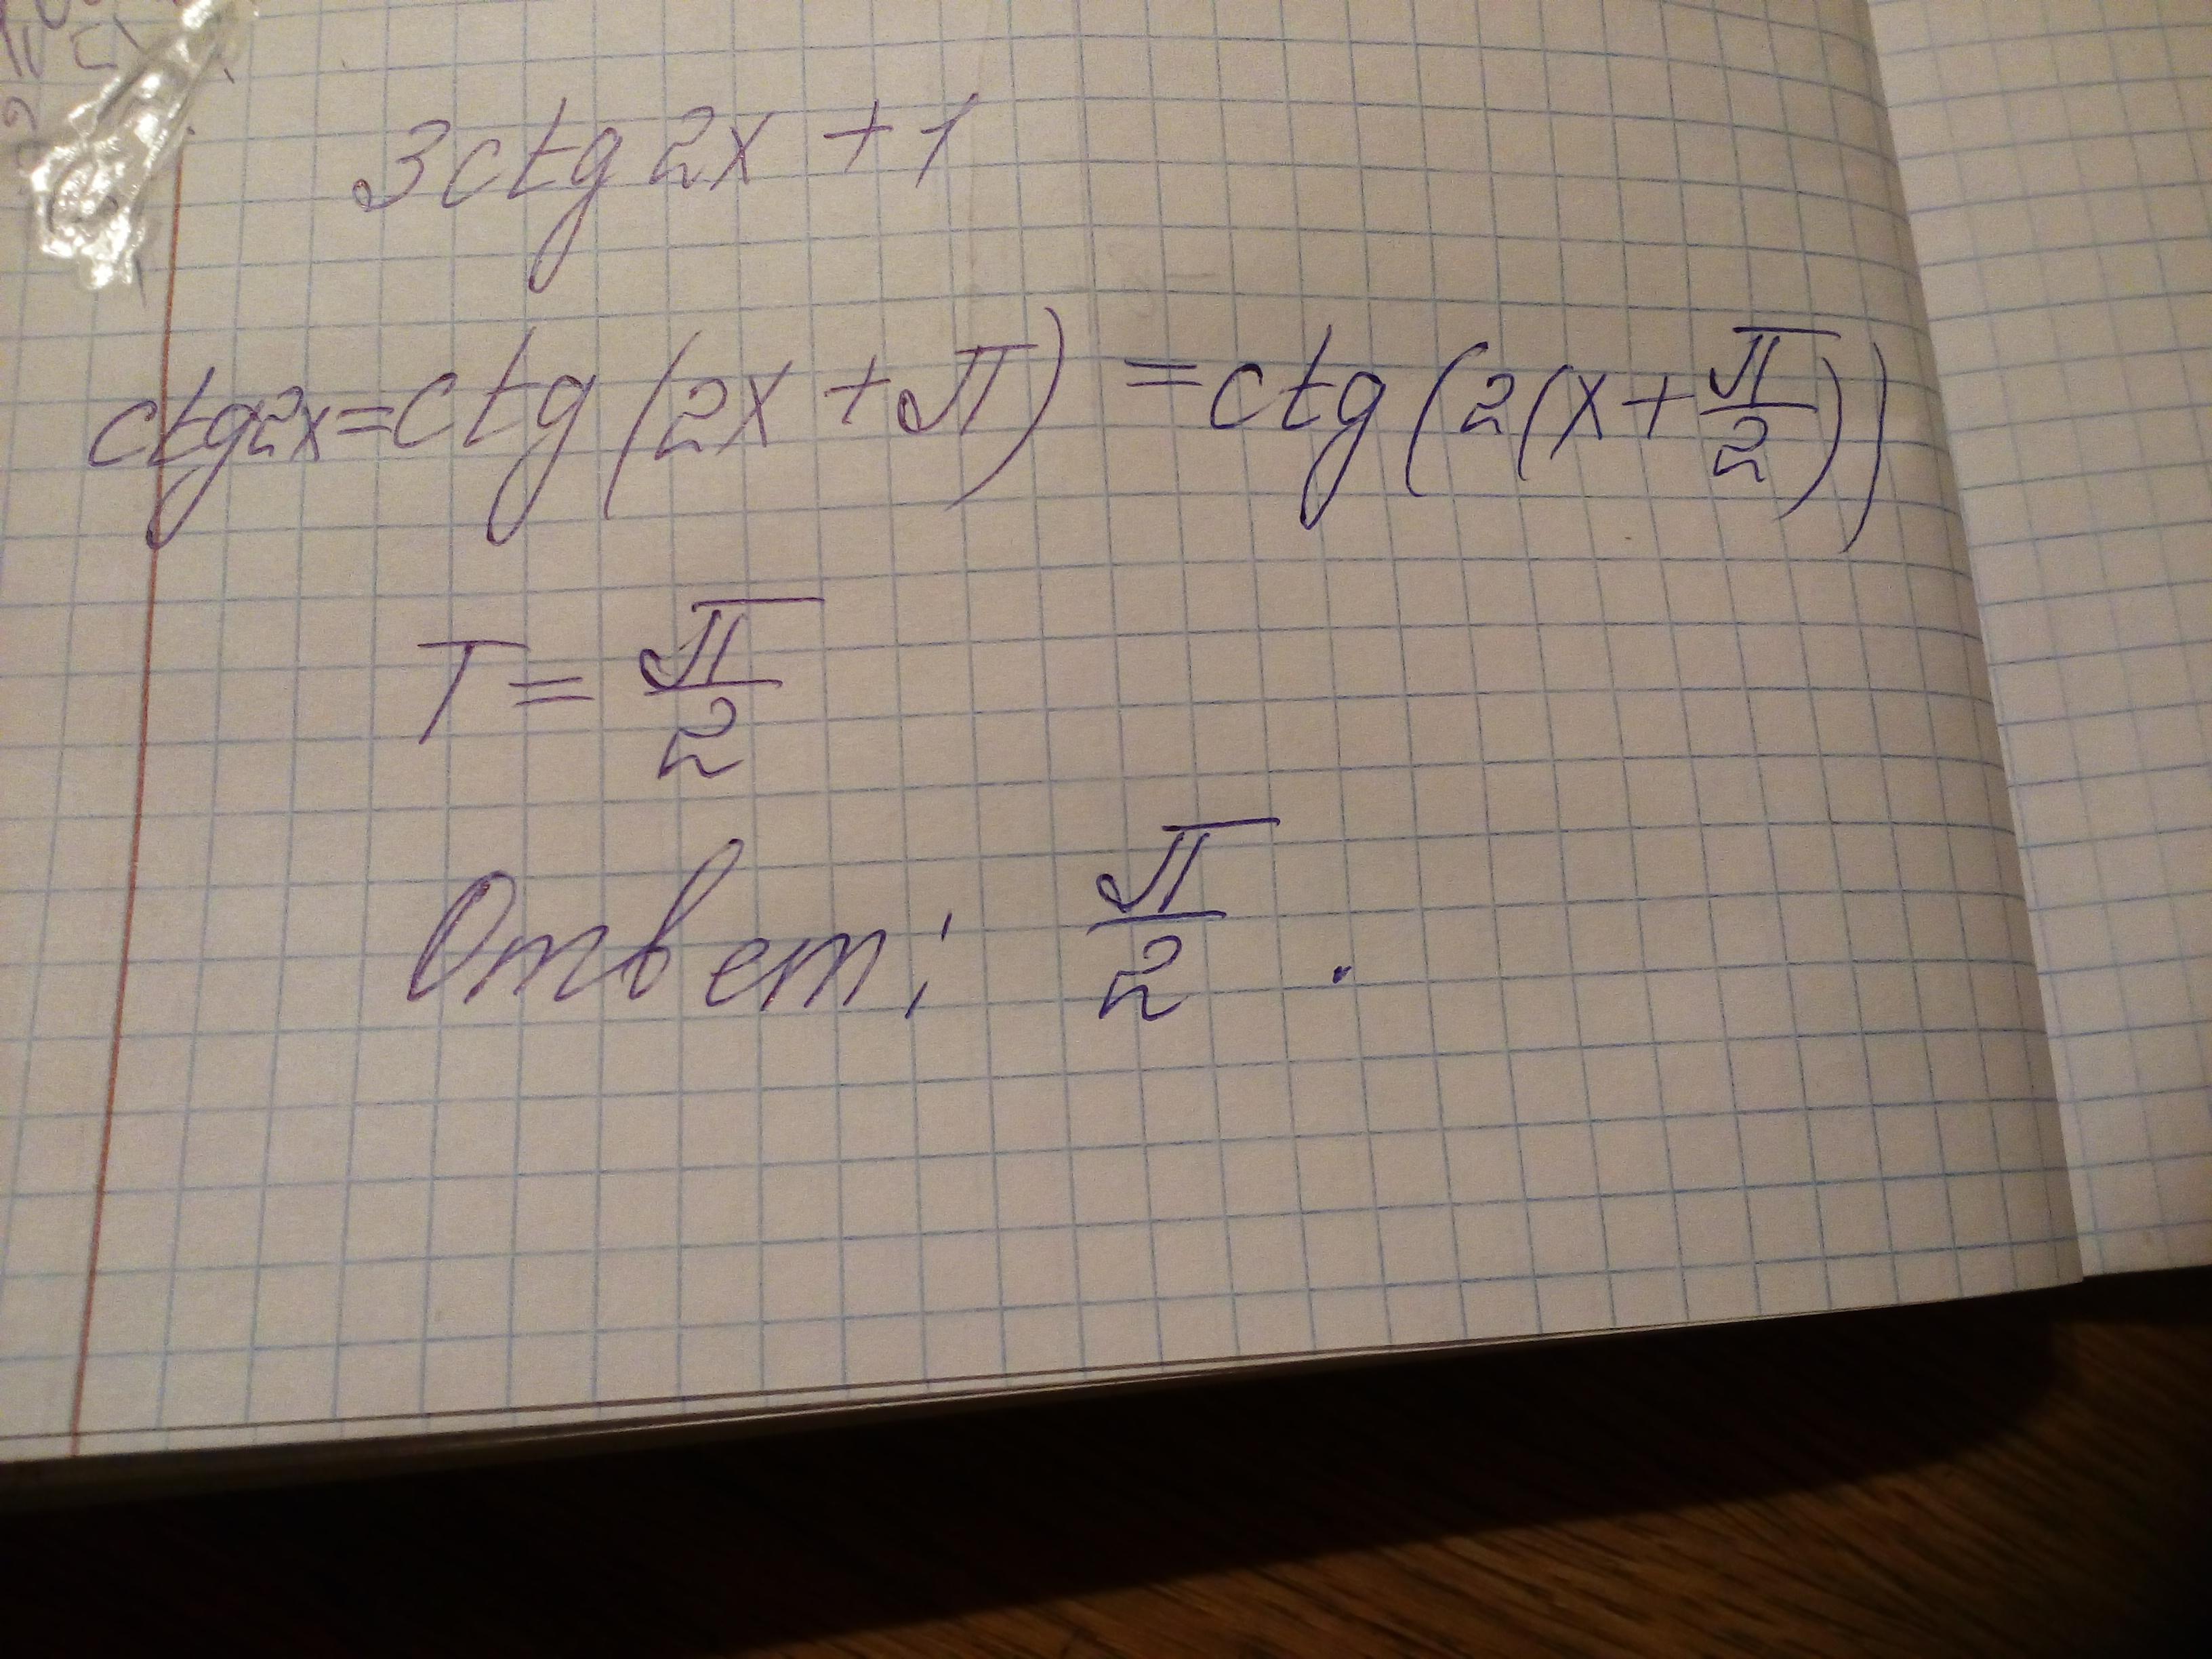 3ctg 2x + 1
ctg2x = ctg(2x + π) = ctg(2(x + π/2))
T = π/2
Ответ: π/2.